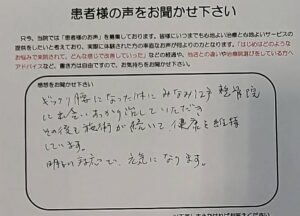 患者様の声をお聞かせ下さい
只今、当院では「患者様のお声」を募集しております。皆様にいつまでも心地よい治療と心地よいサービスの
提供をしたいと考えており、実際に体験された方の率直なお声が何よりのものとなります。「はじめはどのような
お悩みで来院されて、どんな感じで改善していった」などの経過や、「他店との違いや治療院選びをしている方へ
アドバイス」など、書き方は自由ですので、お気持ちをお聞かせ下さい。
感想をお聞かせ下さい
ギックリ腰になった時にみなみ江戸整骨院
に出会い、しっかり治していただき
その後も施術が続いて健康を維持
しています。
明るい対応で、元気になります。